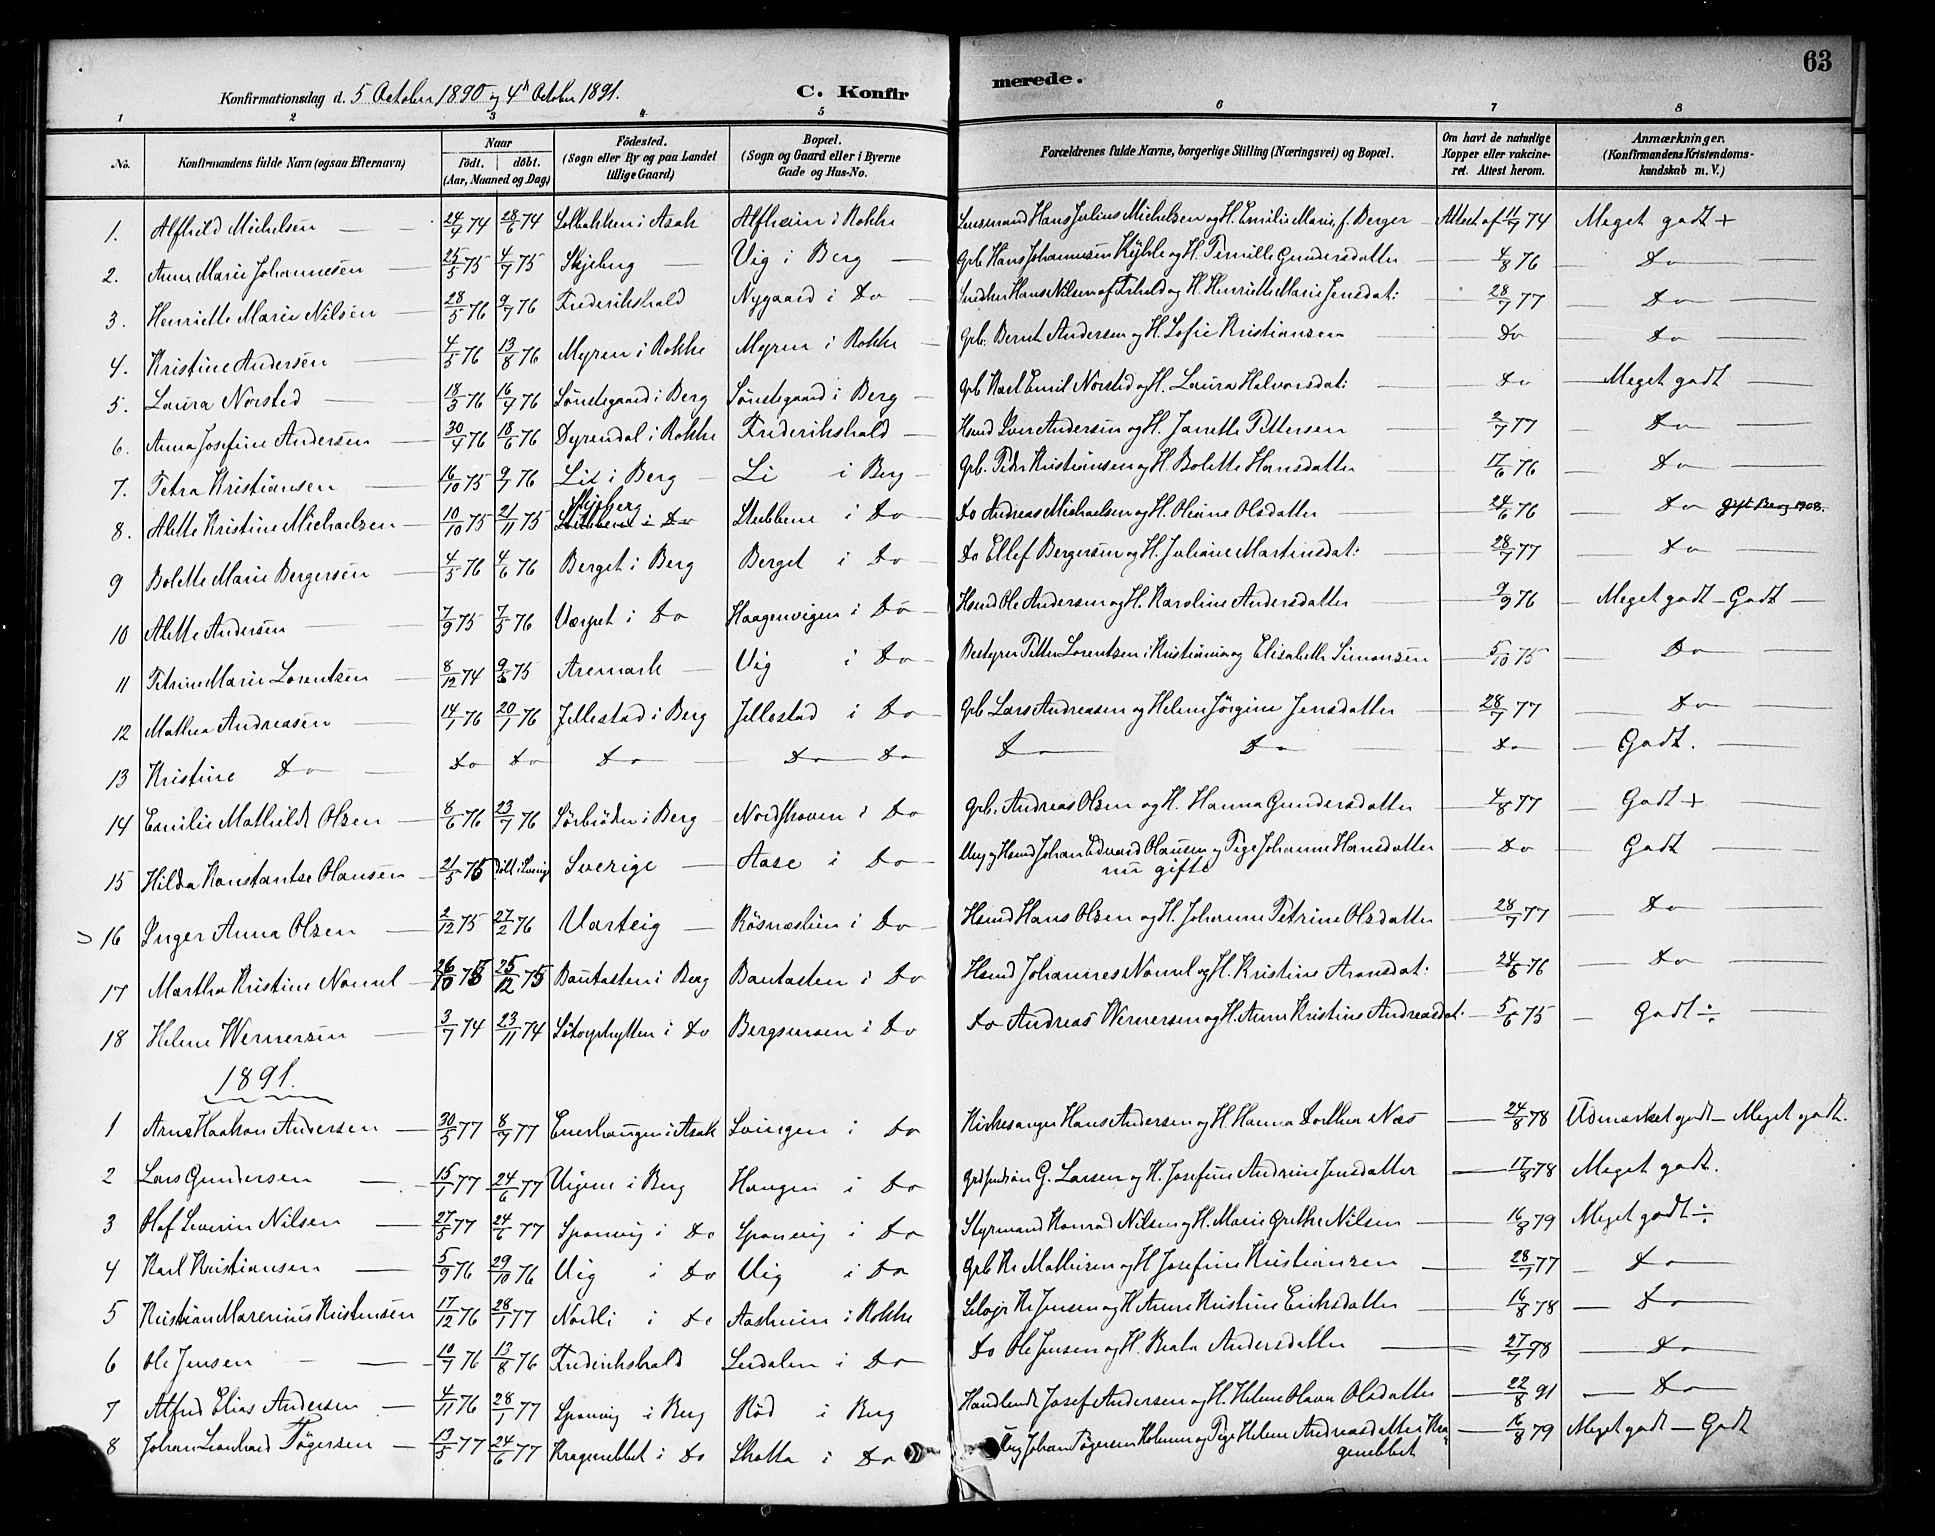 63
Konfirmationsdag d. 5 October 1890 og 4d October 1891. C. Konfirmerede.
1 2 3 4 5 6 7 8
No. Konfirmandens fulde Navn (ogsaa Efternavn) Naar födt. döbt. (Aar, Maaned og Dag) Födested. (Sogn eller By og paa Landet tillige Gaard) Bopæl. (Sogn og Gaard eller i Byerne Gade og Hus-No. Forældrenes fulde Navne, borgerlige Stilling (Næringsvei) og Bopæl. Om havt de naturlige Kopper eller vakcineret. Attest herom. Anmærkninger. (Konfirmandens Kristendomskundskab m. V.)
1. Alfhild Michelsen 24/4 74 28/6 74 Solbakken i Asak Alfheim i Rokke Hans Julius Michelsen og H. Emilie Marie, f. Berger Attest af 11/7 74 Meget godt +
2. Anne Marie Johannesen 25/5 75 4/7 75 Skjeberg Vig i Berg Grb Hans Johannesen og H. Pernille Gundersdatter 4/8 76 Do
3. Henriette Marie Nilsen 28/5 76 9/7 76 Frederikshald Nygaard i Do Snedker Hans Nilsen og H. Henriette Marie Jensdat: 28/7 77 Do
4. Kristine Andersen 4/5 76 13/8 76 Myren i Rokke Myren i Rokke Grb. Bernt Andersen og H. Sofie Kristiansen Do Do
5. Laura Norsted 18/3 76 16/4 76 Sönstegaard i Berg Sönstegaard i Berg Grb Karl Emil Norsted og H. Laura Halvorsdat: Do Meget godt
6. Anna Josefine Andersen 30/4 76 18/6 76 Dyrendal i Rokke Frederikshald Hsmd Iver Andersen og H. Janette Pettersen 2/7 77 Do
7. Petra Kristiansen 16/10 75 9/7 76 Li i Berg Li i Berg Grb. Peder Kristiansen og H. Bolette Hansdatter 17/6 76 Do
8. Alette Kristine Michaelsen 10/10 75 21/11 75 Skjeberg Stubbene i Do Stubbene i Do Do Andreas Michaelsen og H. Oline Olsdatter 24/6 76 Do gift Berg 1908.
9 Bolette Marie Bergersen 4/5 76 4/6 76 Berget i Berg Berget i Do Do Ellef Bergersen og H. Juliane Martinsdat: 28/7 77 Do
10 Alette Andersen 7/9 75 7/5 76 Værpet i Do Haagenvigen i Do Hsmd Ole Andersen og H. Karoline Andersdatter 9/9 76 Meget godt - Godt
11 Petrine Marie Lorentsen 8/12 74 9/6 75 Aremark Vig i Do Bestyrer Petter Lorentsen i Kristiania og Elisabeth Simonsen 5/10 75 Do
12 Mathea Andreasen 14/1 76 20/1 76 Jellestad i Berg Jellestad i Do Grb Lars Andreasen og Helene Jörgine Jensdatter 28/7 77 Do
13 Kristine Do Do Do Do Do Do Do Do Do Godt.
14 Emilie Mathilde Olsen 8/6 76 23/7 76 Sörbröden i Berg Nordhoven i Do Grb. Andreas Olsen og H. Hanna Gundersdatter 4/8 77 Godt +
15 Hilda Konstantse Olausen 21/5 75 Döbt i Sverige Sverige Aase i Do Ung og Hsmd Johan Edvard Olausen og Pige Johanne Hansdatter nu gifte Do Godt
16 Inger Anna Olsen 2/12 75 27/2 76 Varteig Rösnæslien i Do Hsmd Hans Olsen og H. Johanne Petrine Olsdatter 28/7 77 Do
17 Martha Kristine Nomel 26/10 75 25/12 75 Bautasten i Berg Bautasten i Do Hsmd Johannes Nomel og H. Kristine Aronsdat: 24/6 76 Do
18 Helene Wernersen 3/7 74 23/11 74 i Do Bergsmosen i Do Do Andreas Wernersen og H. Anne Kristine Andreasdat. 5/6 75 Godt ÷
1891.
1 Arne Haakon Andersen 30/5 77 8/7 77 Enerhaugen i Asak Svingen i Do Kirkesanger Hans Andersen og H. Hanna Dorthea Næs 24/8 78 Udmærket godt - Meget godt.
2 Lars Gundersen 15/1 77 24/6 77 Vigene i Berg Haugen i Do G. Larsen og H. Josefine Andrine Jensdatter 17/8 78 Meget godt.
3 Olaf Severin Nilsen 27/5 77 24/6 77 Sponvig i Do Sponvig i Do Styrmand Konrad Nilsen og H. Marie Grethe Nilsen 16/8 79 Meget godt ÷
4 Karl Kristiansen 5/9 76 29/10 76 Vig i Do Vig i Do Grb Kr Mathisen og H Josefine Kristiansen 28/7 77 Do
5 Kristian Marenius Kristensen 17/12 76 28/1 77 Nordli i Do Aasheim i Rokke Selvejr Kr Jensen og H Anne Kristine Eriksdatter 16/8 78 Do
6 Ole Jensen 10/7 76 13/8 76 Frederikshald Lerdalen i Do Do Ole Jensen og H. Beata Andersdatter 27/7 78 Do
7 Alfred Elias Andersen 4/11 76 28/1 77 Sponvig i Berg Röd i Berg Handlende Josef Andersen og H. Helene Olava Olsdatter 22/8 91 Do
8 Johan Leonhard Tögersen 13/5 77 24/6 77 Kragenebbet i Do Skotta i Do Ung Johan Tögersen Holmen og Pige Helene Andreasdatter Kragenebbet 16/8 79 Meget godt - Godt